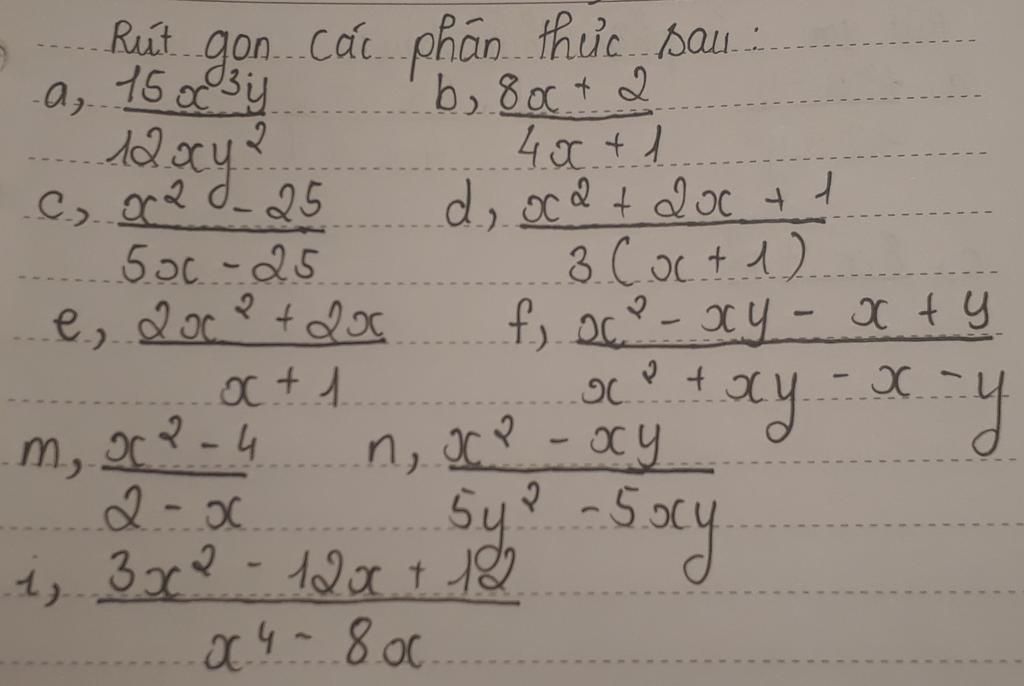 Rút gọn các phân thức sau:
a, 15x³y / 12xy² b, 8x + 2 / 4x + 1
c, x² - 25 / 5x - 25 d, x² + 2x + 1 / 3(x + 1)
e, 2x² + 2x / x + 1 f, x² - xy - x + y / x² + xy - x - y
m, x² - 4 / 2 - x n, x² - xy / 5y² - 5xy
i, 3x² - 12x + 12 / x⁴ - 8x